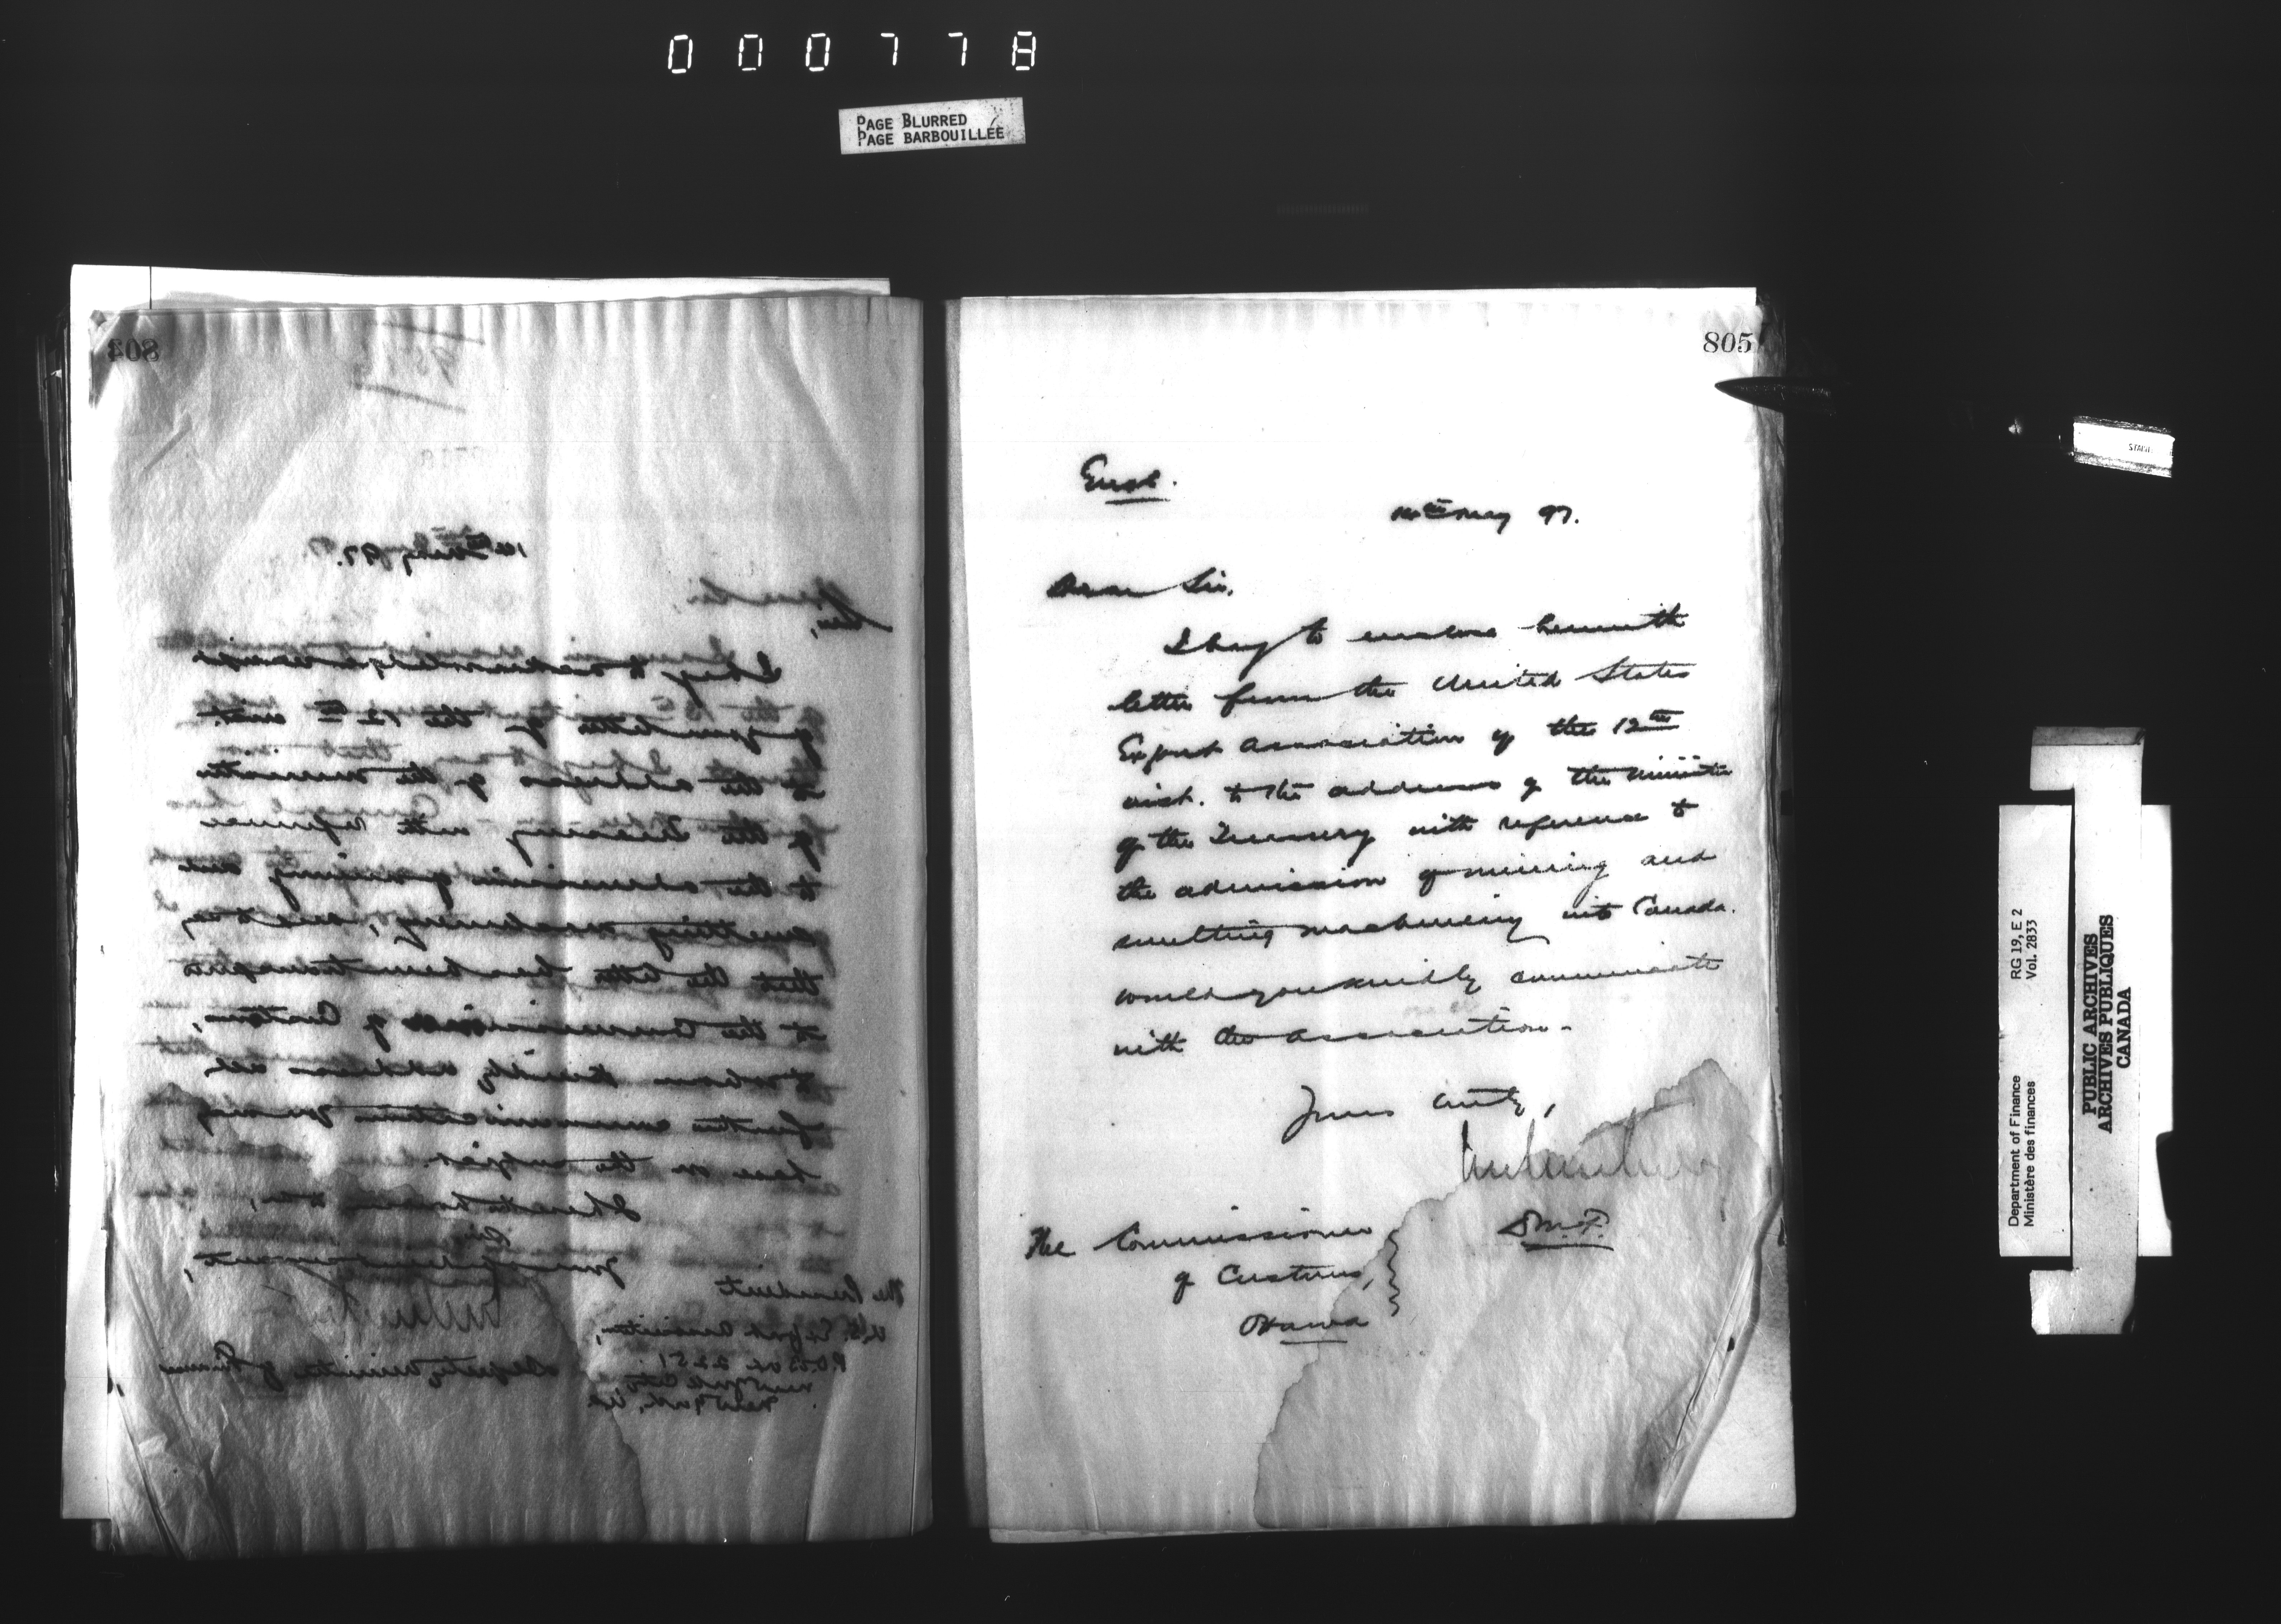 000778
PAGE BLURRED
PAGE BARBOUILLÉE
14th May 97.
Sir,
I beg to acknowledge receipt
of your letter of the 12th inst.
to the address of the Minister
of the Treasury with reference
to the admission of mining and
smelting machinery,
that the letter has been
to the Commissioner of Customs,
to whom kindly address all
further communications you may
have on the subject.
I have the honour to be,
Sir,
Your obedient servant,
Deputy Minister of Finance
The President
U.S. Export Association,
P.O. Box 2251
New York City,
New York, U.S.
805
Encl.
14th May 97.
Dear Sir,
I beg to enclose herewith
letter from the United States
Export Association of the 12th
inst. to the address of the Minister
of the Treasury with reference to
the admission of mining and
smelting machinery into Canada.
Would you kindly communicate
with the Association.
Yours truly,
D.M.F.
The Commissioner
of Customs,
Ottawa
RG 19, E 2
Vol. 2833
Department of Finance
Ministère des finances
PUBLIC ARCHIVES
ARCHIVES PUBLIQUES
CANADA